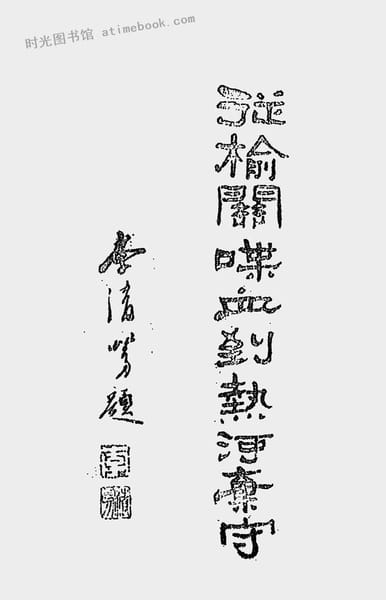 时光图书馆 atimebook.com
從榆關喋血到熱河棄守
李清勞題